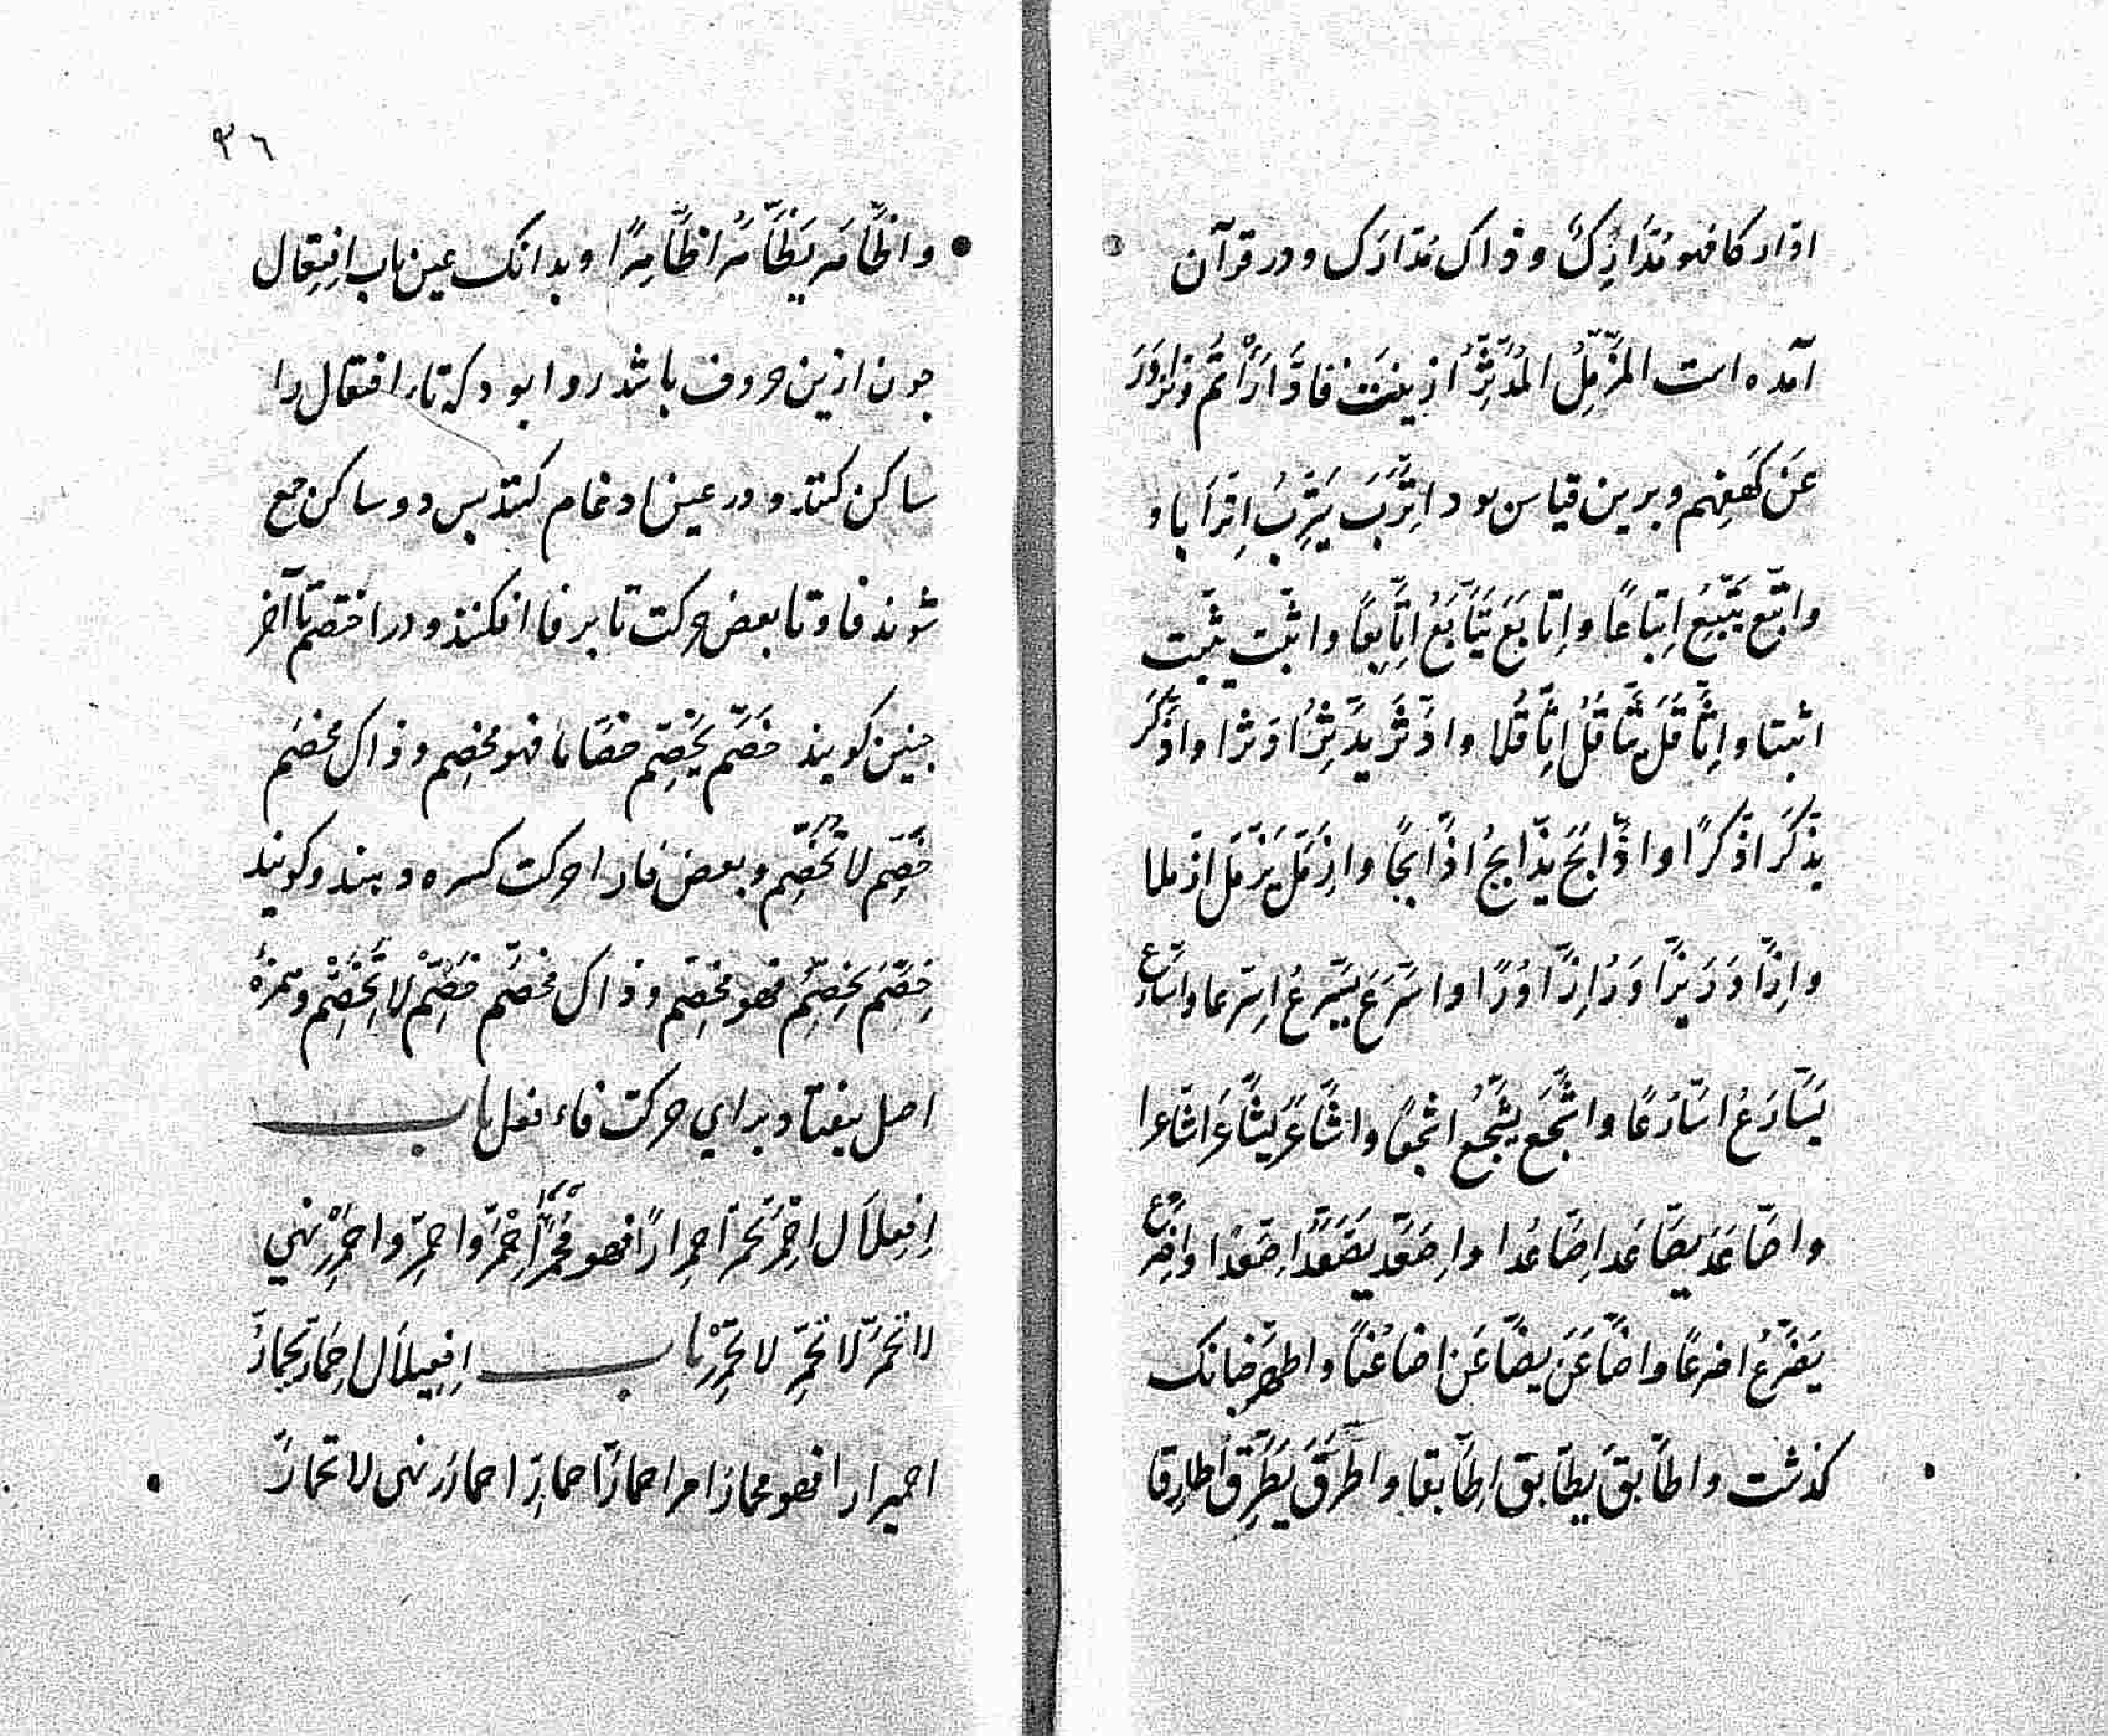 ادّاركا فهو مُدَّارِكٌ و ذاك مدّارَك و در قرآن
آمده است المُزَّمِّلُ المُدَّثِّرُ ازینت فادّارأتم و تزاورُ
عَن كَهفِهِم و برین قیاس بود اتّرَّبَ يَتَّرِبُ اتّرّابا و
واتّبّع يتّبّعُ اِتّباعًا و اِتّابَعَ يَتّابَعُ اِتّابعًا و اثّبّت يثّبّت
اثبّتا و اِثّاقَلَ يثّاقَلُ اِثّاقُلا و ادّثّر يدّثّرُ ادّثّرا و اذّكّر
يذّكّر اذّكّرًا و اذّابَح يذّابحُ اذّابحًا و ازّمّل يزّمّل ازّملا
و اِزّاوَرَ يزّاوَرُ اِزّاوُرًا و اسّرّعَ يسّرّعُ اِسّرعا و اسّارع
يَسّارَعُ اسّارعًا و اشّجّع يشّجّعُ اشّجعًا و اشّاعَرَ يشّاعَر اشّاعرا
و اصّاعَدَ يصّاعَد اِصّاعُدا و اِصّعّد يصّعّدُ اِصّعّدًا و اضّرّع
يَضّرّعُ اضّرعًا و اضّاعَنَ يضّاعَن اضّاعُنًا و اطّهّر چنانک
كذشت و اطّابقَ يطّابق اِطّابقا و اطّرّق يَطّرّق اطّارقا
٣٦
و اظّاهَر يظّاهَر اظّاهُرًا و بدانک عین باب اِفتِعال
جون ازین حروف باشد روا بود كه تاء افتعال را
ساكن كنند و در عین ادغام كنند بس دو ساكن جمع
شوند فا و تا بعض حركت تا بر فا افكنند و در اختصم تا آخر
جنین كویند خَصّم يَخَصّم خصّاما فهو مخصّم و ذاك مخصّم
خَصّم لا تَخَصّم و بعض فا را حركت كسره دهند و كویند
خِصّم يَخِصّم فهو مخِصّم و ذاك مخصّم خِصّم لا تَخِصّم و همزهٔ
اصل بیفتاد برای حركت فاء فعل باب
اِفعِلاَل اِحمَرّ يحمرّ احمِرارًا فهو مُحمَرّ اِحمَرّ و احمَرِّ و احمَرِرْ نهي
لا تحمَرّ لا تحمَرِّ لا تحمَرِرْ باب افعِيلاَل اِحمَارّ يحمَارّ
احمیرارا فهو محمارّ امر احمارَّ احمارِّ احمارِر نهی لا تحمارَّ